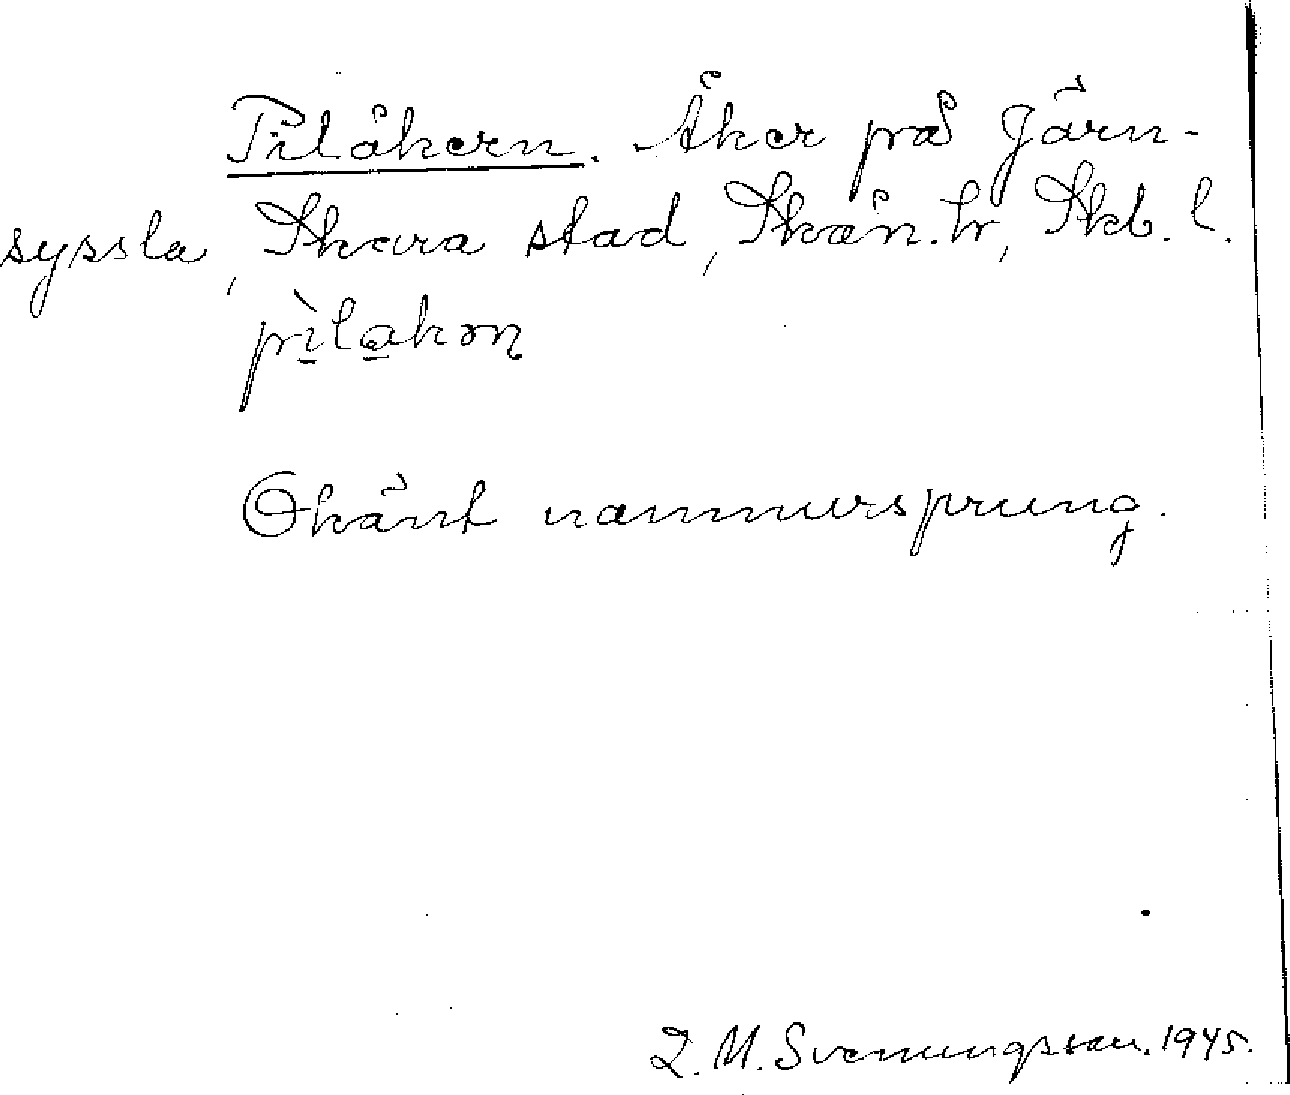 Pilåkern. Åker på Järn-
syssla, Skara stad, Skån. hr, Skb. l.
pìlakən
Okänt namnursprung.
L. M. Svenungsson. 1945.